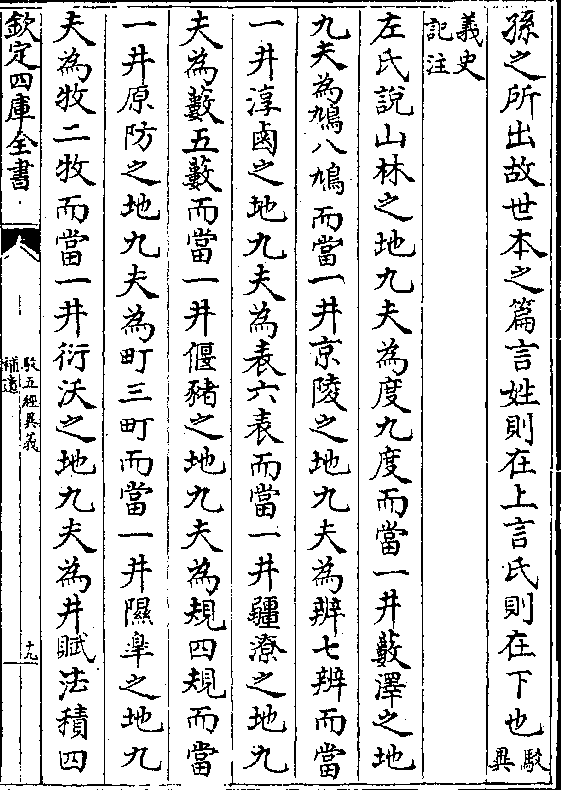 孫之所出故世本之篇言姓則在上言氏則在下也駁異
義史記注
左氏說山林之地九夫為度九度而當一井藪澤之地
九夫為鳩八鳩而當一井京陵之地九夫為辨七辨而當
一井淳鹵之地九夫為表六表而當一井疆潦之地九
夫為藪五藪而當一井偃豬之地九夫為規四規而當
一井原防之地九夫為町三町而當一井隰臯之地九
夫為牧二牧而當一井衍沃之地九夫為井賦法積四
欽定四庫全書
駁五經異義
補遺
十九